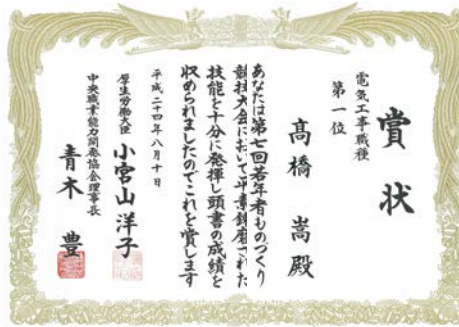 賞状
電気工事職種
第一位
髙橋 嵩殿
あなたは第七回若年者ものづくり
競技大会において平素錬磨された
技能を十分に発揮し頭書の成績を
収められましたのでこれを賞します
平成二十四年八月十日
厚生労働大臣 小宮山洋子
中央職業能力開発協会理事長
青木 豊